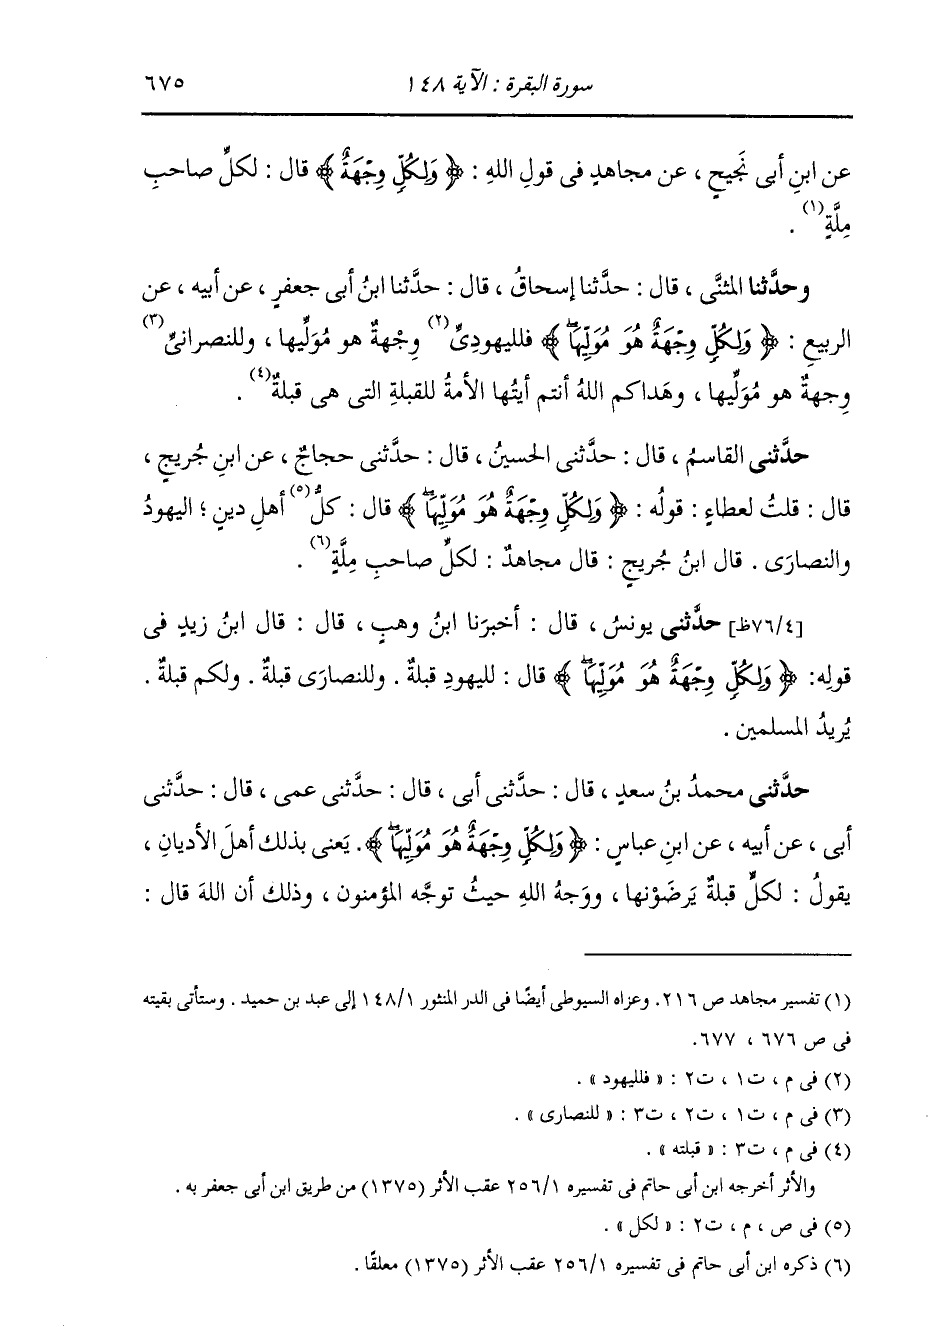 سورة البقرة : الآية ١٤٨
٦٧٥
عن ابنِ أبى نَجيحٍ ، عن مجاهدٍ فى قولِ اللهِ : ﴿ وَلِكُلٍّ وِجْهَةٌ ﴾ قال : لكلِّ صاحبِ
مِلَّةٍ(١) .
وحدَّثنا المثنَّى ، قال : حدَّثنا إسحاقُ ، قال : حدَّثنا ابنُ أبى جعفرٍ ، عن أبيه ، عن
الربيع : ﴿ وَلِكُلٍّ وِجْهَةٌ هُوَ مُوَلِّيهَا ۖ ﴾ فلليهودىِّ(٢) وِجْهةٌ هو مُوَلِّيها ، وللنصرانىِّ(٣)
وِجهةٌ هو مُوَلِّيها ، وهَداكم اللهُ أنتم أيتُها الأمةُ للقبلةِ التى هى قبلةٌ(٤) .
حدَّثنى القاسمُ ، قال : حدَّثنى الحسينُ ، قال : حدَّثنى حجاجٌ ، عن ابنِ جُريجٍ ،
قال : قلتُ لعطاءٍ : قولُه : ﴿ وَلِكُلٍّ وِجْهَةٌ هُوَ مُوَلِّيهَا ۖ ﴾ قال : كلُّ(٥) أهلِ دينٍ ؛ اليهودُ
والنصارَى . قال ابنُ جُريجٍ : قال مجاهدٌ : لكلِّ صاحبِ مِلَّةٍ(٦) .
[٧٦/٤ظ] حدَّثنى يونسُ ، قال : أخبرَنا ابنُ وهبٍ ، قال : قال ابنُ زيدٍ فى
قولِه: ﴿ وَلِكُلٍّ وِجْهَةٌ هُوَ مُوَلِّيهَا ۖ ﴾ قال : لليهودِ قبلةٌ . وللنصارَى قبلةٌ . ولكم قبلةٌ .
يُريدُ المسلمين .
حدَّثنى محمدُ بنُ سعدٍ ، قال : حدَّثنى أبى ، قال : حدَّثنى عمى ، قال : حدَّثنى
أبى ، عن أبيه ، عن ابنِ عباسٍ : ﴿ وَلِكُلٍّ وِجْهَةٌ هُوَ مُوَلِّيهَا ۖ ﴾. يَعنى بذلك أهلَ الأديانِ ،
يقولُ : لكلٍّ قبلةٌ يَرضَوْنها ، ووَجهُ اللهِ حيثُ توجَّه المؤمنون ، وذلك أن اللهَ قال :
(١) تفسير مجاهد ص ٢١٦. وعزاه السيوطى أيضًا فى الدر المنثور ١٤٨/١ إلى عبد بن حميد . وستأتى بقيته
فى ص ٦٧٦ ، ٦٧٧.
(٢) فى م ، ت١ ، ت٢ : « فلليهود » .
(٣) فى م ، ت١ ، ت٢ ، ت٣ : « للنصارى » .
(٤) فى م ، ت٣ : « قبلته » .
والأثر أخرجه ابن أبى حاتم فى تفسيره ٢٥٦/١ عقب الأثر (١٣٧٥) من طريق ابن أبى جعفر به .
(٥) فى ص ، م ، ت٢ : « لكل » .
(٦) ذكره ابن أبى حاتم فى تفسيره ٢٥٦/١ عقب الأثر (١٣٧٥) معلقًا .